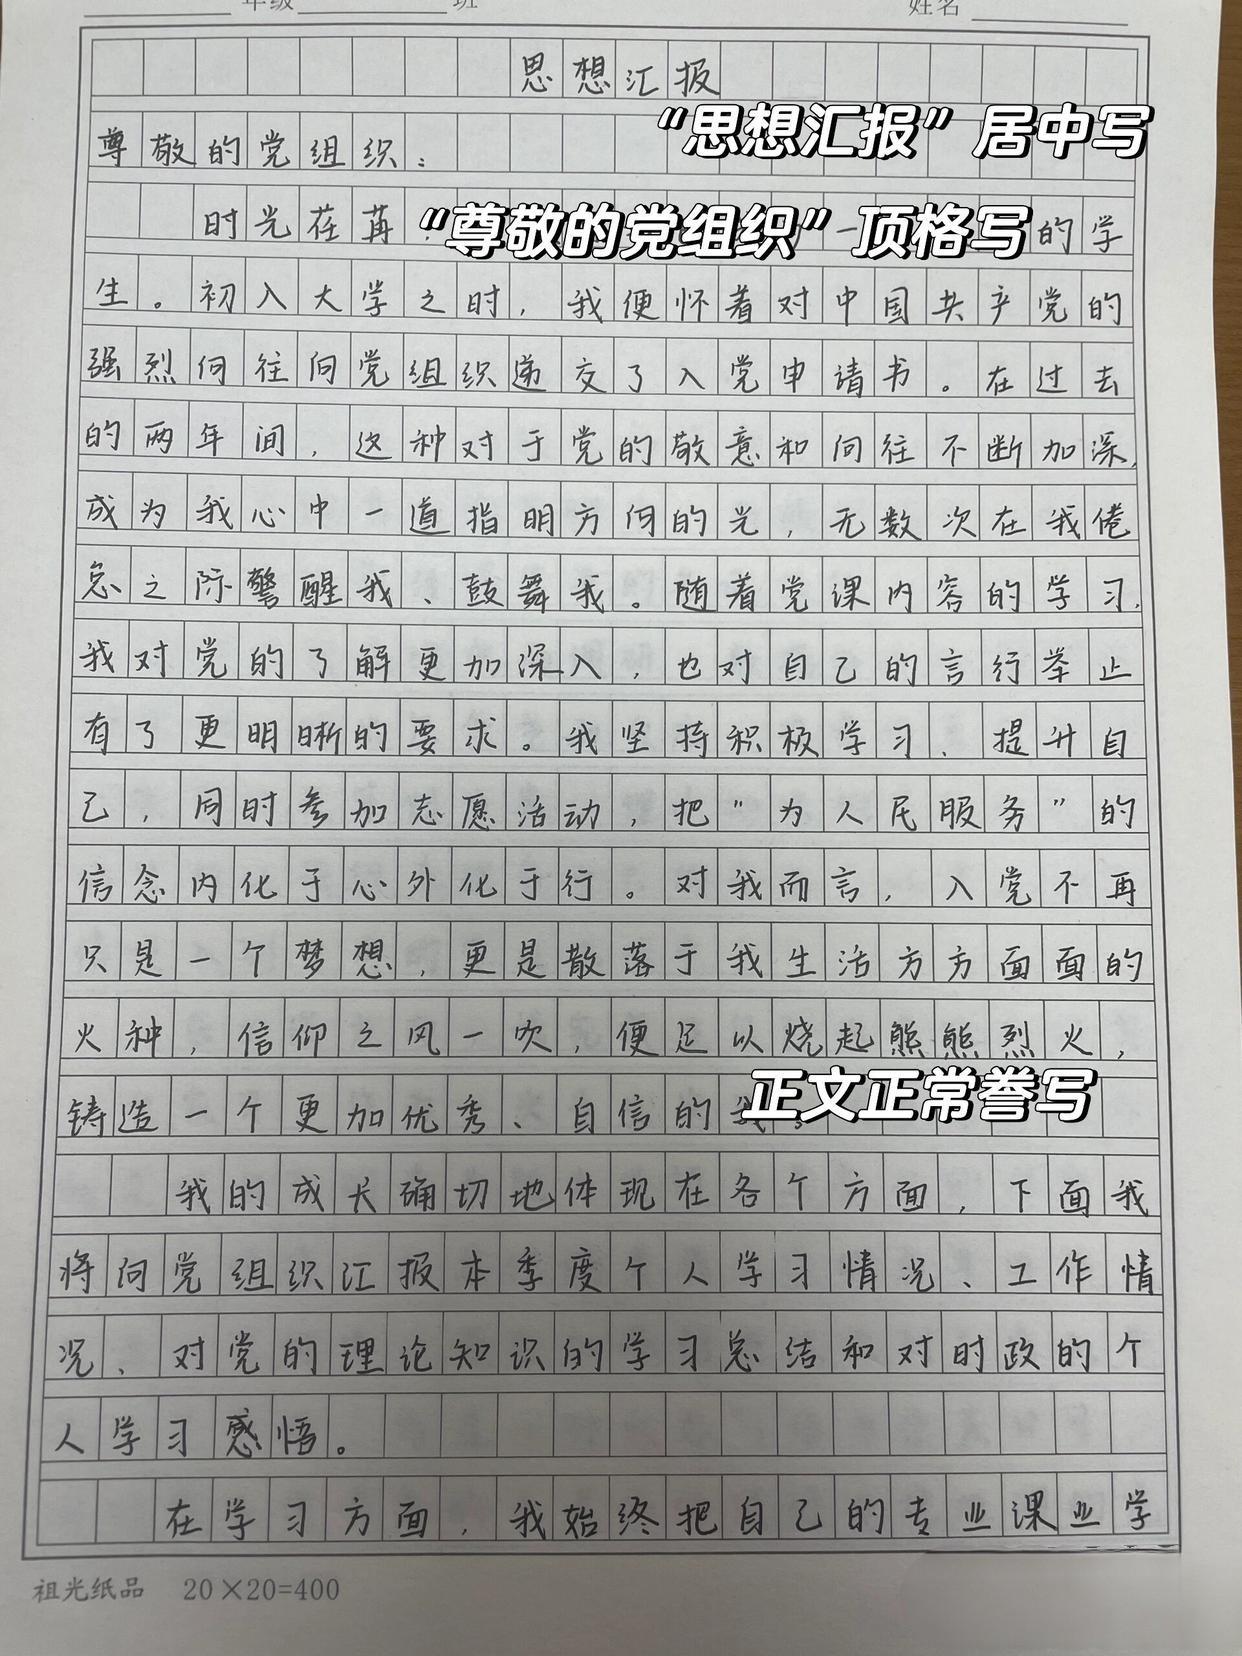 年级 班 姓名
思想汇报
“思想汇报”居中写
尊敬的党组织：
时光荏苒
“尊敬的党组织”顶格写
的学
生。初入大学之时，我便怀着对中国共产党的
强烈向往向党组织递交了入党申请书。在过去
的两年间，这种对于党的敬意和向往不断加深，
成为我心中一道指明方向的光，无数次在我倦
怠之际警醒我、鼓舞我。随着党课内容的学习，
我对党的了解更加深入，也对自己的言行举止
有了更明晰的要求。我坚持积极学习、提升自
己，同时参加志愿活动，把“为人民服务”的
信念内化于心外化于行。对我而言，入党不再
只是一个梦想，更是散落于我生活方方面面的
火种，信仰之风一吹，便足以烧起熊熊烈火，
正文正常誊写
铸造一个更加优秀、自信的我。
我的成长确切地体现在各个方面，下面我
将向党组织汇报本季度个人学习情况、工作情
况、对党的理论知识的学习总结和对时政的个
人学习感悟。
在学习方面，我始终把自己的专业课业学
祖光纸品 20×20=400